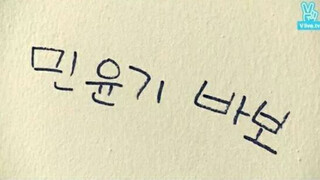 민윤기 바보